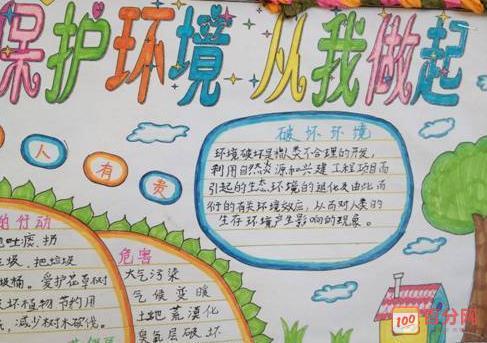 保护环境 从我做起
人有责
破坏环境
环境破坏是人类不合理的开发,
利用自然资源和兴建工程项目而
引起的生态环境的退化及由此而
衍的有关环境效应,从而对人类的
生存环境产生影响的现象。
的行动
地吐痰、扔
垃圾、把垃圾
圾桶。爱护花草树
坏植物 节约用
减少树木砍伐。
危害
大气污染
气候变暖
土地荒漠化
臭氧层破坏
100 百分网